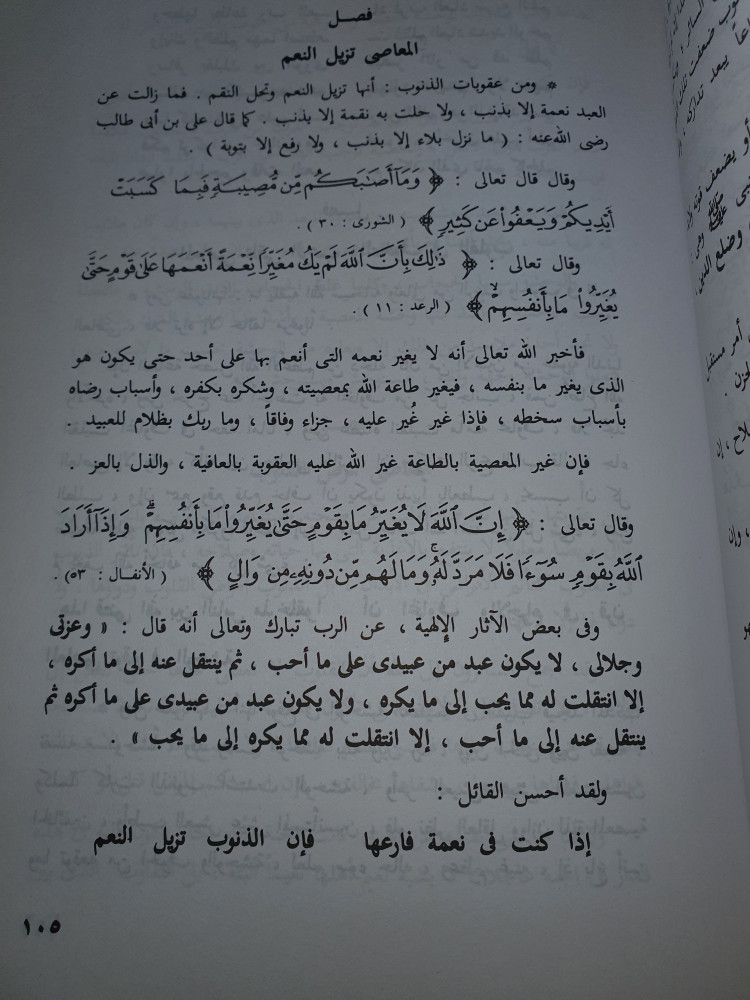 فصل
المعاصى تزيل النعم
* ومن عقوبات الذنوب : أنها تزيل النعم وتحل النقم . فما زالت عن
العبد نعمة إلا بذنب ، ولا حلت به نقمة إلا بذنب . كما قال على بن أبى طالب
رضى الله عنه : ( ما نزل بلاء إلا بذنب ، ولا رفع إلا بتوبة ) .
وقال قال تعالى : ﴿ وَمَآ أَصَٰبَكُم مِّن مُّصِيبَةٍ فَبِمَا كَسَبَتْ
أَيْدِيكُمْ وَيَعْفُوا۟ عَن كَثِيرٍ ﴾ ( الشورى : ٣٠ ) .
وقال تعالى : ﴿ ذَٰلِكَ بِأَنَّ ٱللَّهَ لَمْ يَكُ مُغَيِّرًا نِّعْمَةً أَنْعَمَهَا عَلَىٰ قَوْمٍ حَتَّىٰ
يُغَيِّرُوا۟ مَا بِأَنفُسِهِمْ ﴾ ( الرعد : ١١ ) .
فأخبر الله تعالى أنه لا يغير نعمه التى أنعم بها على أحد حتى يكون هو
الذى يغير ما بنفسه ، فيغير طاعة الله بمعصيته ، وشكره بكفره ، وأسباب رضاه
بأسباب سخطه ، فإذا غير غُير عليه ، جزاء وفاقاً ، وما ربك بظلام للعبيد .
فإن غير المعصية بالطاعة غير الله عليه العقوبة بالعافية ، والذل بالعز .
وقال تعالى : ﴿ إِنَّ ٱللَّهَ لَا يُغَيِّرُ مَا بِقَوْمٍ حَتَّىٰ يُغَيِّرُوا۟ مَا بِأَنفُسِهِمْ ۗ وَإِذَآ أَرَادَ
ٱللَّهُ بِقَوْمٍ سُوٓءًا فَلَا مَرَدَّ لَهُۥ ۚ وَمَا لَهُم مِّن دُونِهِۦ مِن وَالٍ ﴾ ( الأنفال : ٥٣ ) .
وفى بعض الآثار الإلهية ، عن الرب تبارك وتعالى أنه قال : « وعزتى
وجلالى ، لا يكون عبد من عبيدى على ما أحب ، ثم ينتقل عنه إلى ما أكره ،
إلا انتقلت له مما يحب إلى ما يكره ، ولا يكون عبد من عبيدى على ما أكره ثم
ينتقل عنه إلى ما أحب ، إلا انتقلت له مما يكره إلى ما يحب » .
ولقد أحسن القائل :
إذا كنت فى نعمة فارعها فإن الذنوب تزيل النعم
١٠٥